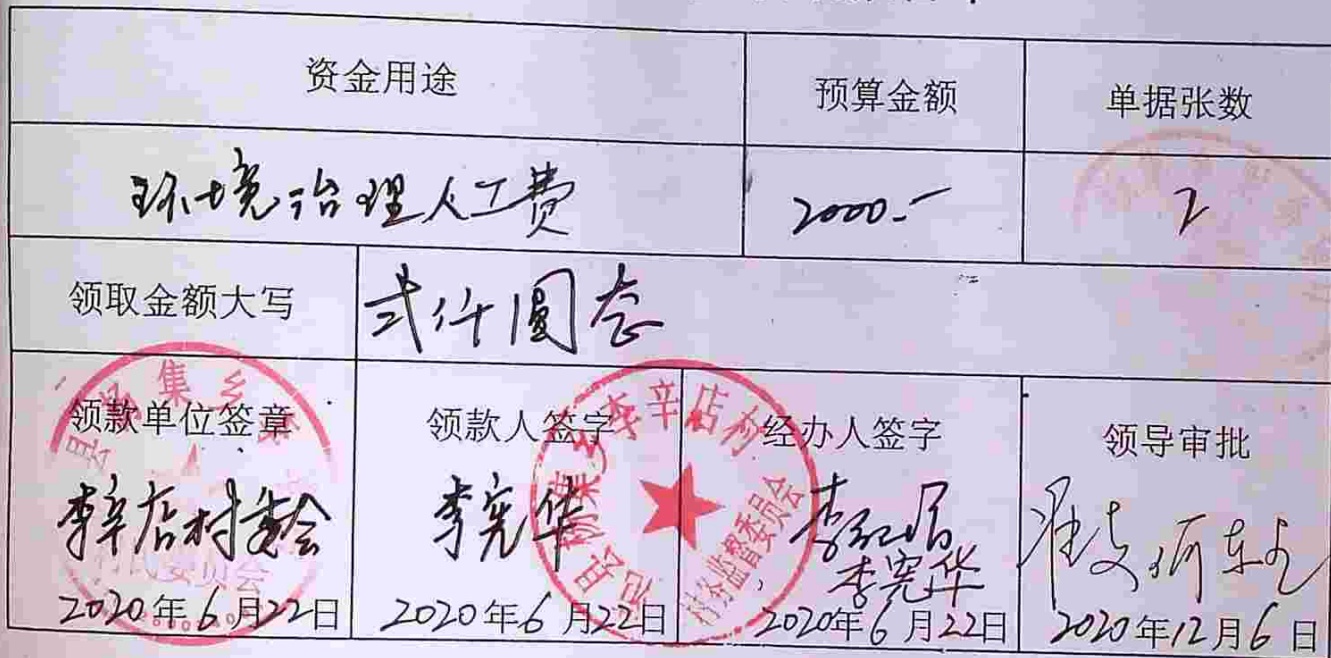 资金用途 预算金额 单据张数
环境治理人工费 2000.- 2
领取金额大写 弍仟圆态
领款单位签章 领款人签字 经办人签字 领导审批
李辛店村委会 李宪华 李宪华
2020年6月22日 2020年6月22日 2020年6月22日 2020年12月6日
集乡李辛店村
村务监督委员会